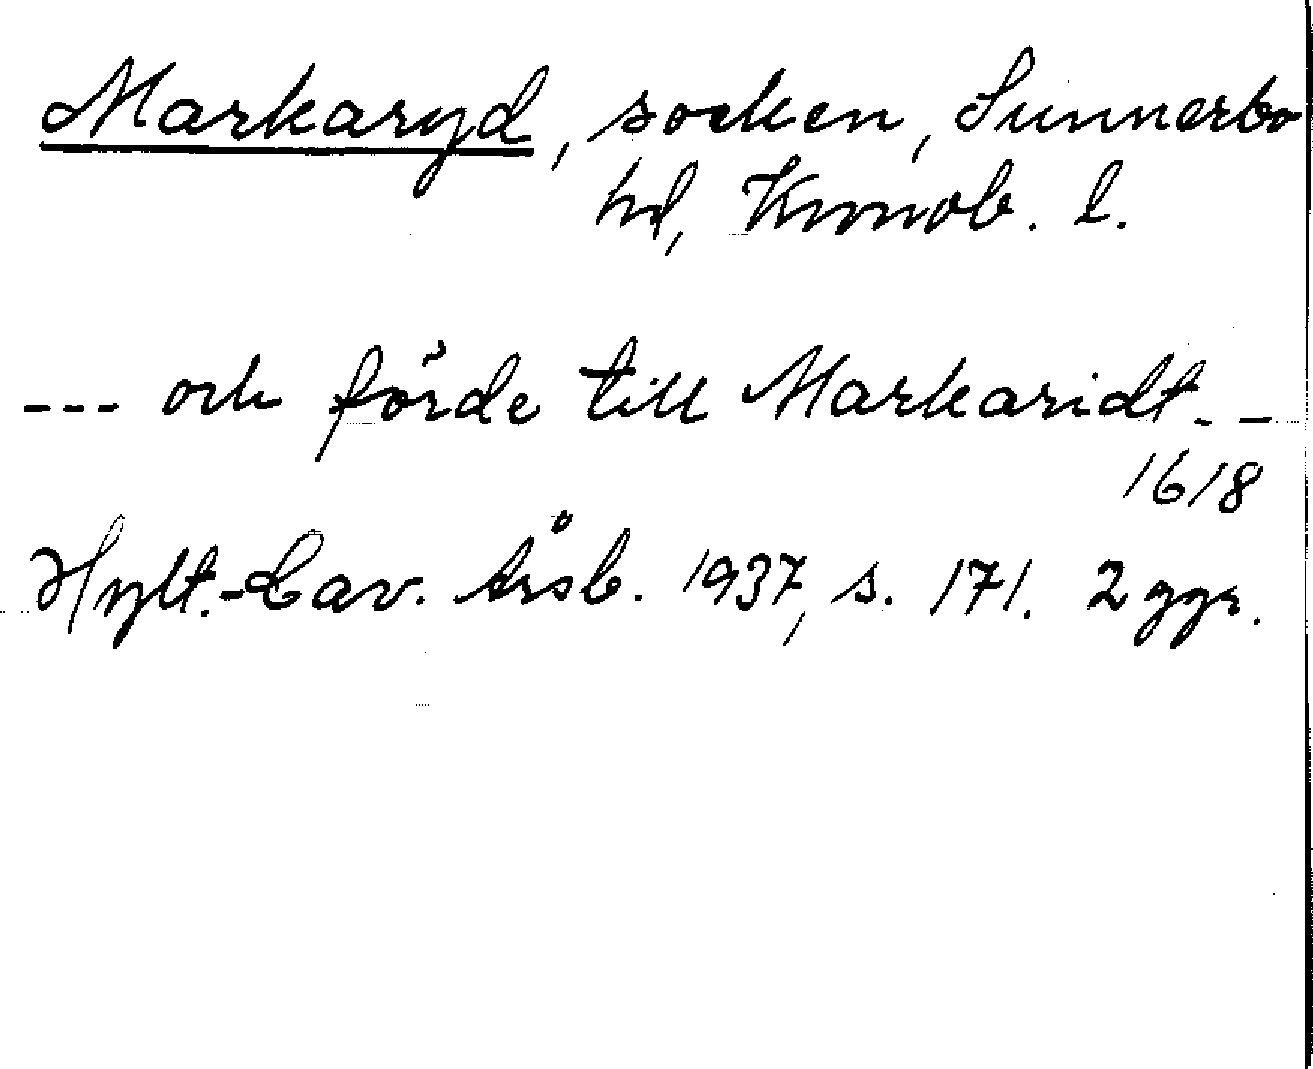 Markaryd, socken, Sunnerbo
hd, Kronob. l.
--- och förde till Markaridt--
1618
Hylt.-Cav. Årsb. 1937, s. 171. 2 ggr.